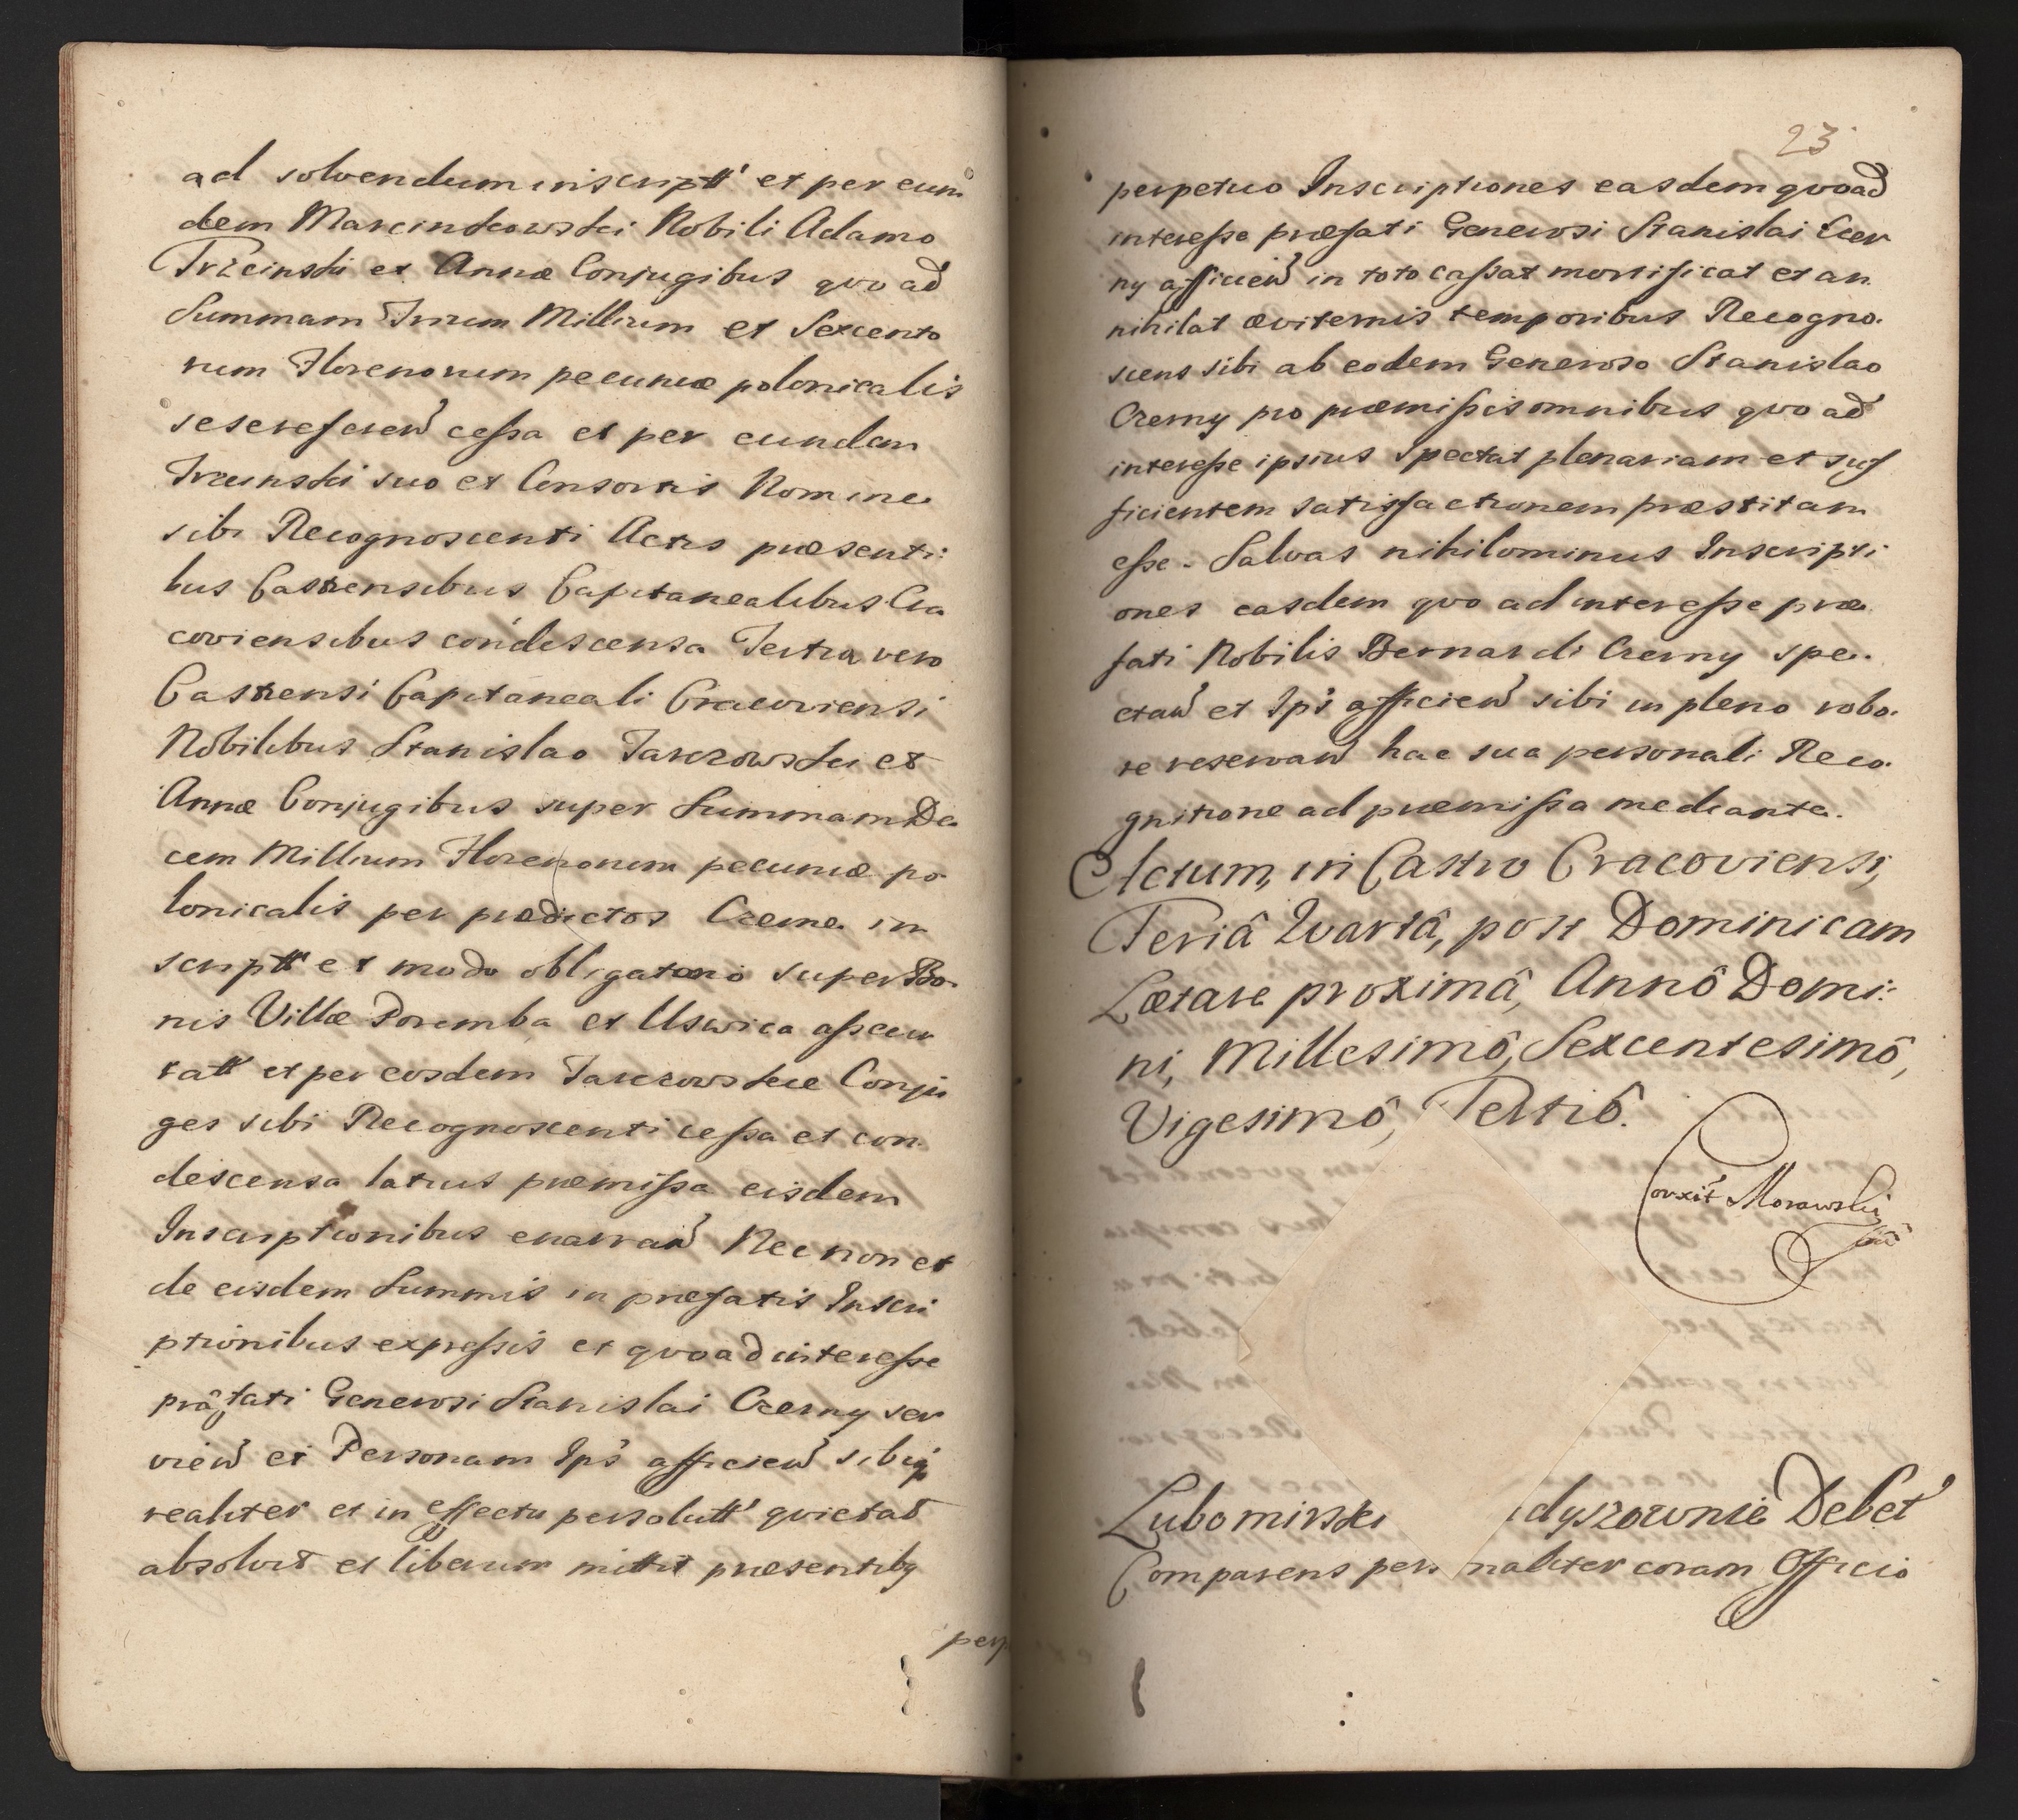 ad solvendum inscriptt' et per eun
dem Marcinkowski Nobili Adamo
Trzcinski et Annæ Conjugibus quo ad
Summam Trium Millium et Sexcento
rum Florenorum pecuniæ polonicalis
sese referen cessa et per eundem
Trzcinski suo et Consortis Nomine
sibi Recognoscenti Actis præsenti:
bus Castrensibus Capitanealibus Cra
coviensibus condescensa Tertia vero
Castrensi Capitaneali Cracoviensi
Nobilibus Stanislao Jaxczowski et
Annæ Conjugibus super Summam De
cem Millium Florenorum pecuniæ po
lonicalis per prædictos Czerne in
scriptt' et modo obligatorio super Bo
nis Villæ Poremba et Uswica assecu
ratt' et per eosdem Conju
ges sibi Recognoscenti cessa et con
descensa latius præmissa eisdem
Inscriptionibus enarran Nec non et
de eisdem Summis in præfatis Inscri
ptionibus expressis et quo ad interesse
præfati Generosi Stanislai Czerny ser
vien et Personam Ips's afficien sibiq
realiter et in effectu persolutt' quietat
absolvit et liberum mittit præsentibq
perp
23
perpetuo Inscriptiones easdem quoad
interesse præfati Generosi Stanislai Czer
ny afficien in toto cassat mortificat et an
nihilat æviternis temporibus Recogno.
scens sibi ab eodem Generoso Stanislao
Czerny pro præmissis omnibus quo ad
interesse ipsius spectat plenariam et suf
ficientem satisfactionem præstitam
esse. Salvas nihilominus Inscripti
ones easdem quo ad interesse præ
fati Nobilis Bernardi Czerny spe.
ctan et Ips's afficien sibi in pleno robo.
re reservan hac sua personali Reco.
gnitione ad præmissa mediante.
Actum, in Castro Cracoviensi,
Feriâ Quartâ, post Dominicam
Lætare proximâ, Annô Domi:
ni, Millesimô, Sexcentesimô,
Vigesimô, Tertiô.
Correxit Morawski
Lubomirski dyszownie Debet
Comparens pers naliter coram Officio